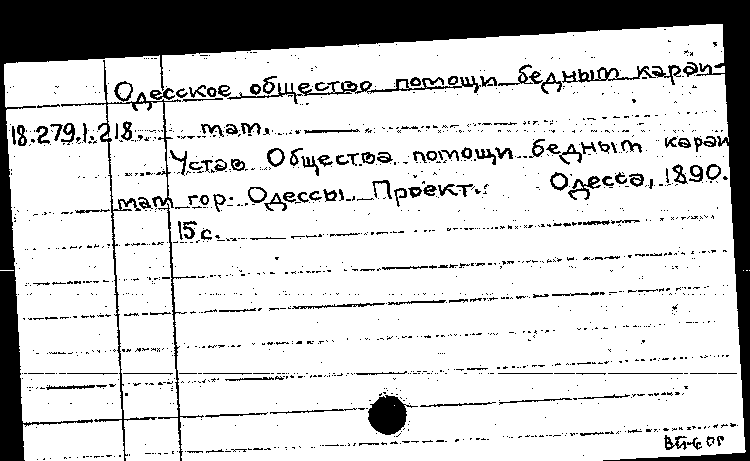 Одесское общество помощи бедным караи-
18.279.1.218. мам.
Устав Общества помощи бедным караи
мам гор. Одессы. Проект. Одесса, 1890.
15 с.